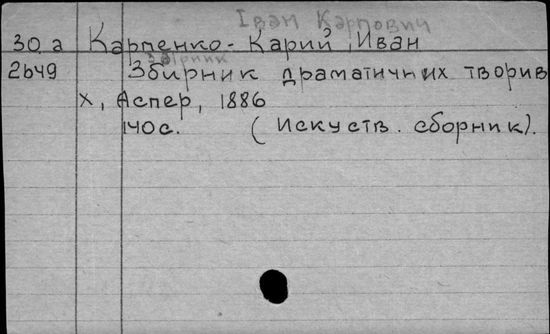 Іван Карпович
30.a Карпенко-Карий, Иван
Збірник
2649 Збирник драматичних творив
Х, Аспер, 1886
140с. (Искуств. сборник).